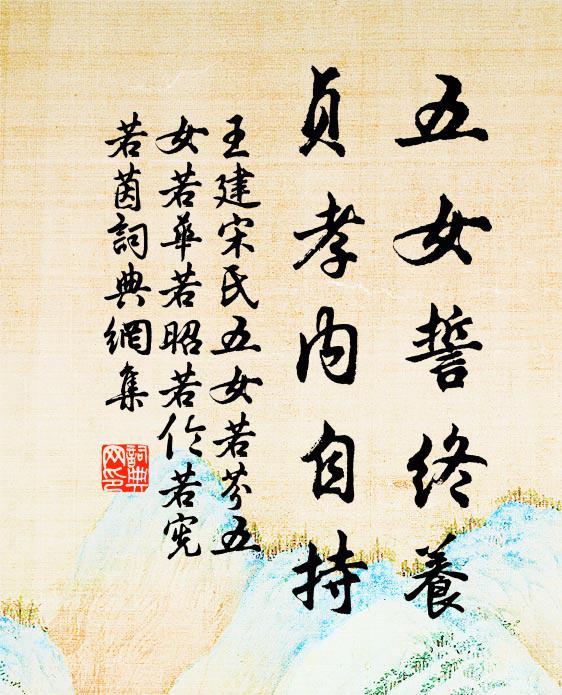 五女誓终養
贞孝内自持
王建宋氏五女若芬五
女若華若昭若伦若宪
若茵詞典網集
詞典
网印